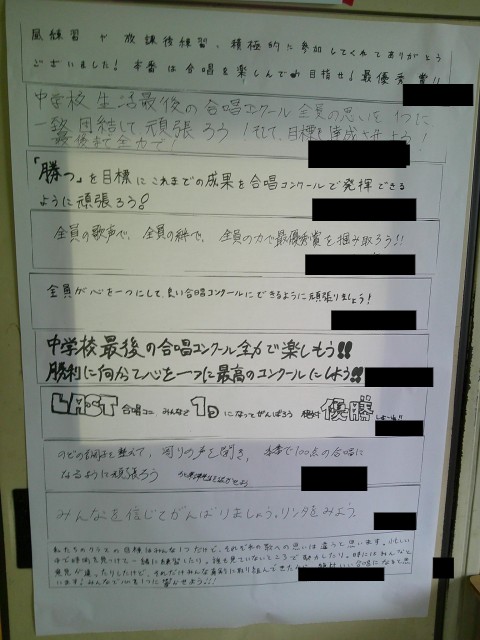 風練習や放課後練習、積極的に参加してくれてありがとう
ございました！本番は合唱を楽しんで♪目指せ！最優秀賞!!
中学校生活最後の合唱コンクール全員の思いを1つに
一致団結して頑張ろう！そして、目標を達成させよう！
最後まで全力で！
「勝つ」を目標にこれまでの成果を合唱コンクールで発揮できる
ように頑張ろう!
全員の歌声で、全員の絆で、全員の力で最優秀賞を掴み取ろう!!
全員が心を一つにして、良い合唱コンクールにできるように頑張りましょう！
中学校最後の合唱コンクール全力で楽しもう!!
勝利に向かって心を一つに最高のコンクールにしよう!!
LAST 合唱コン みんなで 1つ になってがんばろう 絶対 優勝 しよーね!!
のどの調子を整えて、周りの声を聞き、本番で100点の合唱に
なるように頑張ろう
みんなを信じてがんばりましょう。リンダをみよう。
私たちのクラスの目標はみんな1つだけど、それぞれの歌への思いは違うと思います。忙しい
中で時間を見つけて一緒に練習したり。誰も見ていないところで努力したり。時にはみんなと
意見が違ったりしたけど、それだけみんな真剣に取り組んできたんで、絶対いい合唱になると思
います！みんなで心を1つに響かせよう!!!